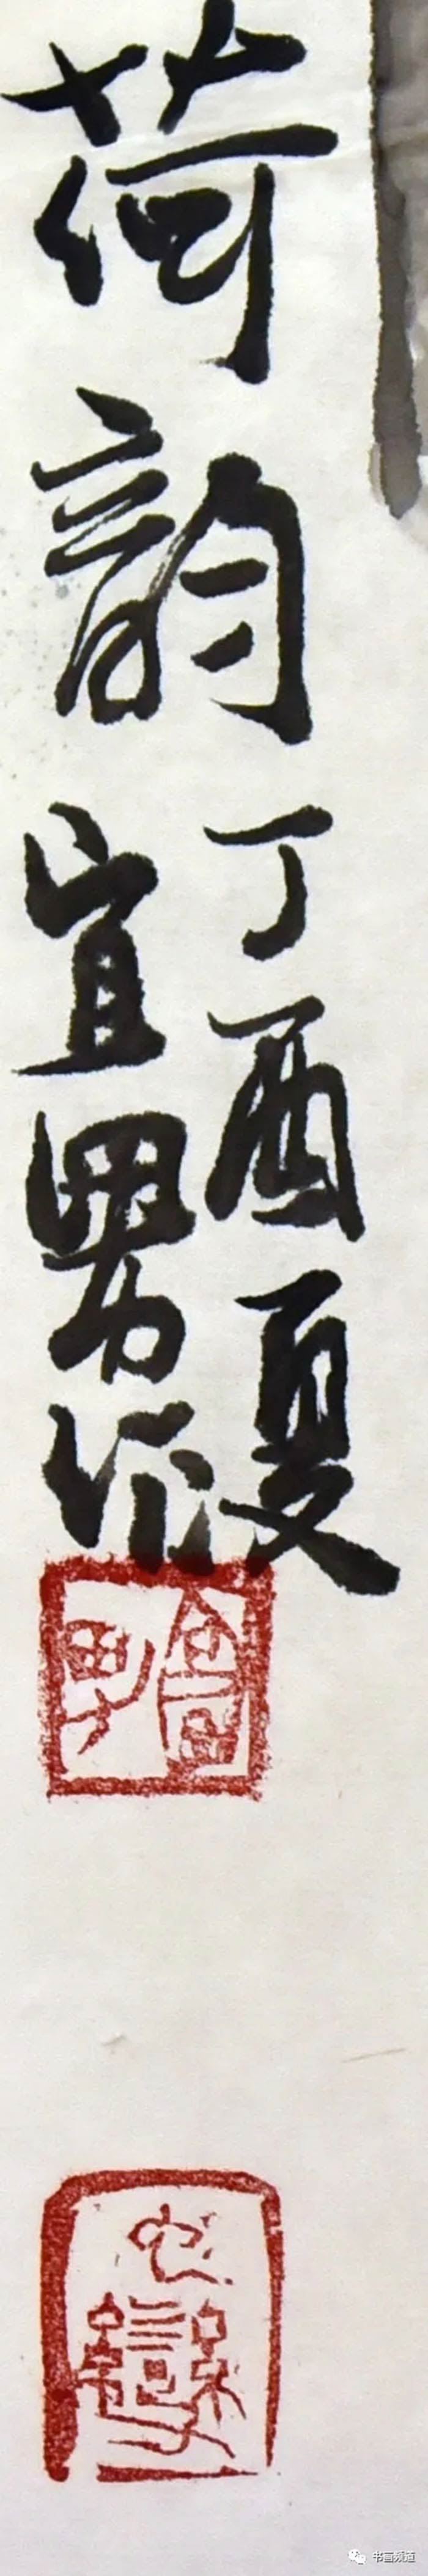 荷韵
丁酉夏
宜男作
书画频道